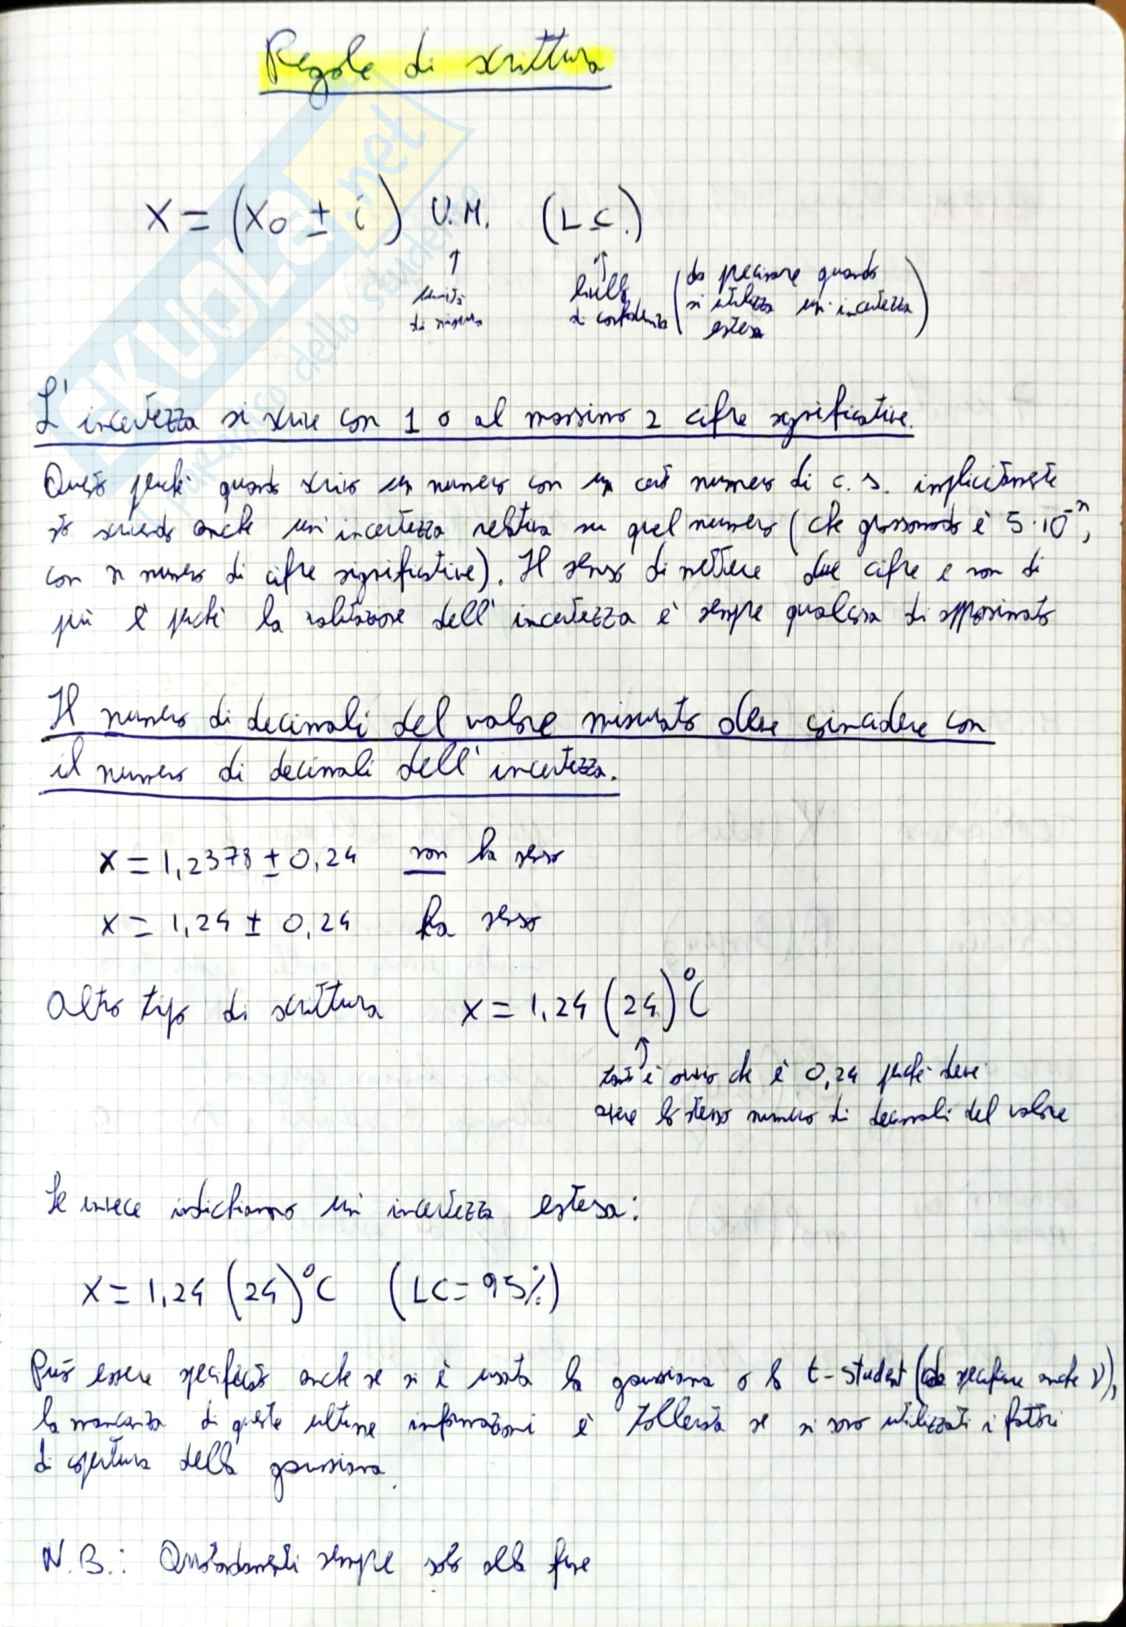 Regole di scrittura
X = (X₀ ± i) U.M. (LC.)
unità di misura
livello di confidenza (da precisare quando si utilizza un'incertezza estesa)
L'incertezza si scrive con 1 o al massimo 2 cifre significative.
Questo perché quando scrivo un numero con un certo numero di c.s. implicitamente
sto scrivendo anche un'incertezza relativa su quel numero (che grossomodo è 5·10⁻ⁿ,
con n numero di cifre significative). Il senso di mettere due cifre e non di
più è perché la valutazione dell'incertezza è sempre qualcosa di approssimato
Il numero di decimali del valore misurato deve coincidere con
il numero di decimali dell'incertezza.
x = 1,2378 ± 0,24 non ha senso
x = 1,24 ± 0,24 ha senso
Altro tipo di scrittura x = 1,24 (24) °C
tanto è ovvio che è 0,24 perché deve
avere lo stesso numero di decimali del valore
Se invece indichiamo un'incertezza estesa:
X = 1,24 (24) °C (LC = 95%)
Può essere specificato anche se si è usata la gaussiana o la t-student (da specificare anche ν),
la mancanza di queste ultime informazioni è tollerata se si sono utilizzati i fattori
di copertura della gaussiana.
N.B.: Arrotondamenti sempre solo alla fine
SKUOLA.net